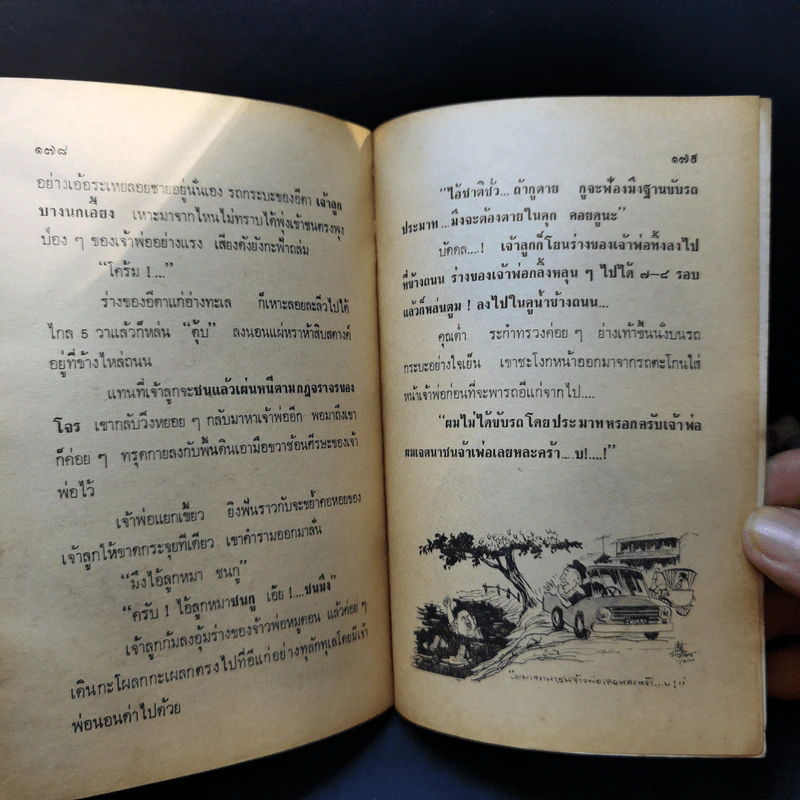 ๑๗๘
อย่างเอ้อระเหยลอยชายอยู่นั่นเอง รถกระบะของอีดา เจ้าลูก
บางนกเอี้ยง เหาะมาจากไหนไม่ทราบได้พุ่งเข้าชนตรงพุง
ป๋อง ๆ ของเจ้าพ่ออย่างแรง เสียงดังยังกะฟ้าถล่ม
“โคร้ม !...”
ร่างของอีตาแก่อ่างทะเล ก็เหาะลอยละลิ่วไปได้
ไกล 5 วาแล้วก็หล่น “ตุ้บ” ลงนอนแผ่หราห้าสิบสตางค์
อยู่ที่ข้างไหล่ถนน
แทนที่เจ้าลูกจะชนแล้วเผ่นหนีตามกฎจราจรของ
โจร เขากลับวิ่งหยอย ๆ กลับมาหาเจ้าพ่ออีก พอมาถึงเขา
ก็ค่อย ๆ ทรุดกายลงกับพื้นดินเอามือขวาช้อนศีรษะของเจ้า
พ่อไว้
เจ้าพ่อแยกเขี้ยว ยิงฟันราวกับจะขย้ำคอหอยของ
เจ้าลูกให้ขาดกระจุยทีเดียว เขาคำรามออกมาลั่น
“มึงไอ้ลูกหมา ชนกู”
“ครับ ! ไอ้ลูกหมาชนกู เอ๊ย !...ชนมึง”
เจ้าลูกก้มลงอุ้มร่างของเจ้าพ่อหมูตอน แล้วค่อย ๆ
เดินกะโผลกกะเผลกตรงไปที่อีแก่อย่างทุลักทุเลโดยมีเจ้า
พ่อนอนด่าไปด้วย
๑๗๙
“ไอ้ชาติชั่ว... ถ้ากูตาย กูจะฟ้องมึงฐานขับรถ
ประมาท...มึงจะต้องตายในคุก คอยดูนะ”
บัดดล....! เจ้าลูกก็โยนร่างของเจ้าพ่อทิ้งลงไป
ที่ข้างถนน ร่างของเจ้าพ่อกลิ้งหลุน ๆ ไปได้ ๗–๘ รอบ
แล้วก็หล่นตูม ! ลงไปในคูน้ำข้างถนน...
คุณดำ ระกำทรวงค่อย ๆ ย่างเท้าขึ้นนั่งบนรถ
กระบะอย่างใจเย็น เขาชะโงกหน้าออกมาจากรถตะโกนใส่
หน้าเจ้าพ่อก่อนที่จะพารถอีแก่จากไป....
“ผมไม่ได้ขับรถโดยประมาทหรอกครับเจ้าพ่อ
ผมเจตนาชนจ้าเพ่อเลยหละคร้า....บ!....!”